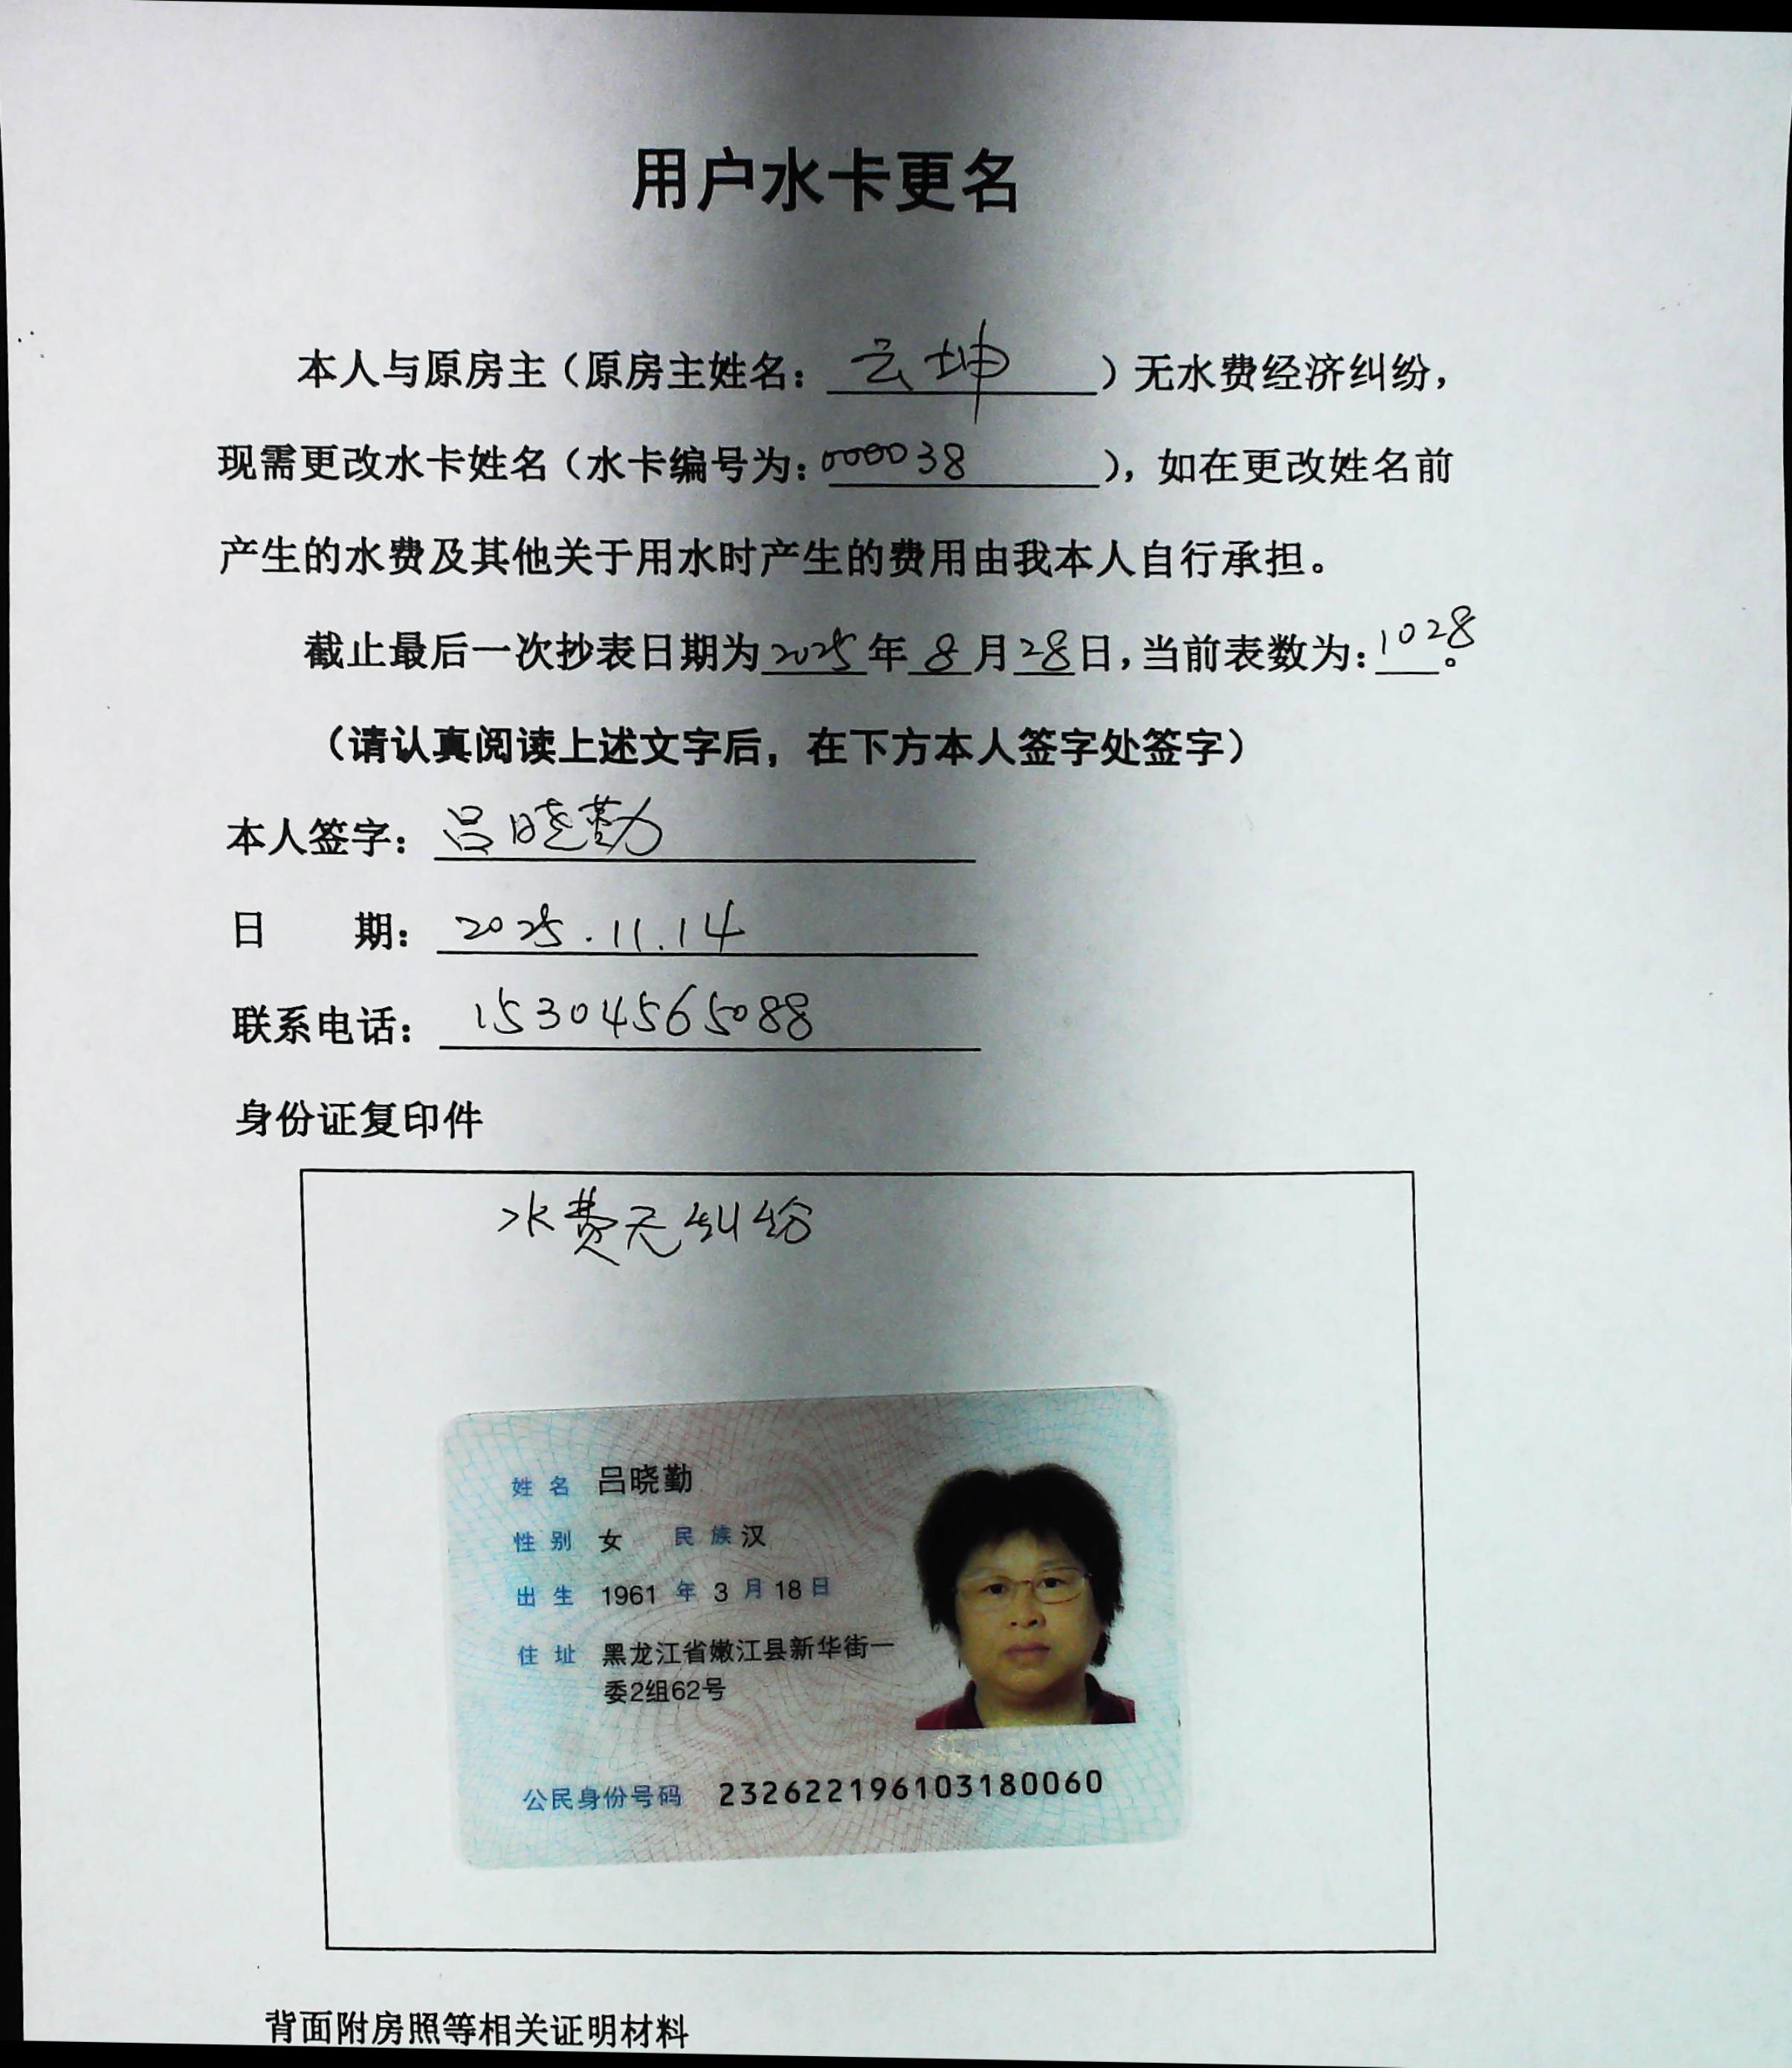 用户水卡更名
本人与原房主（原房主姓名：云坤）无水费经济纠纷，
现需更改水卡姓名（水卡编号为：0000038），如在更改姓名前
产生的水费及其他关于用水时产生的费用由我本人自行承担。
截止最后一次抄表日期为2025年8月28日，当前表数为：1028。
（请认真阅读上述文字后，在下方本人签字处签字）
本人签字：吕晓勤
日 期：2025.11.14
联系电话：15304565088
身份证复印件
水费无纠纷
姓名 吕晓勤
性别 女 民族 汉
出生 1961年3月18日
住址 黑龙江省嫩江县新华街一
委2组62号
公民身份号码 232622196103180060
背面附房照等相关证明材料